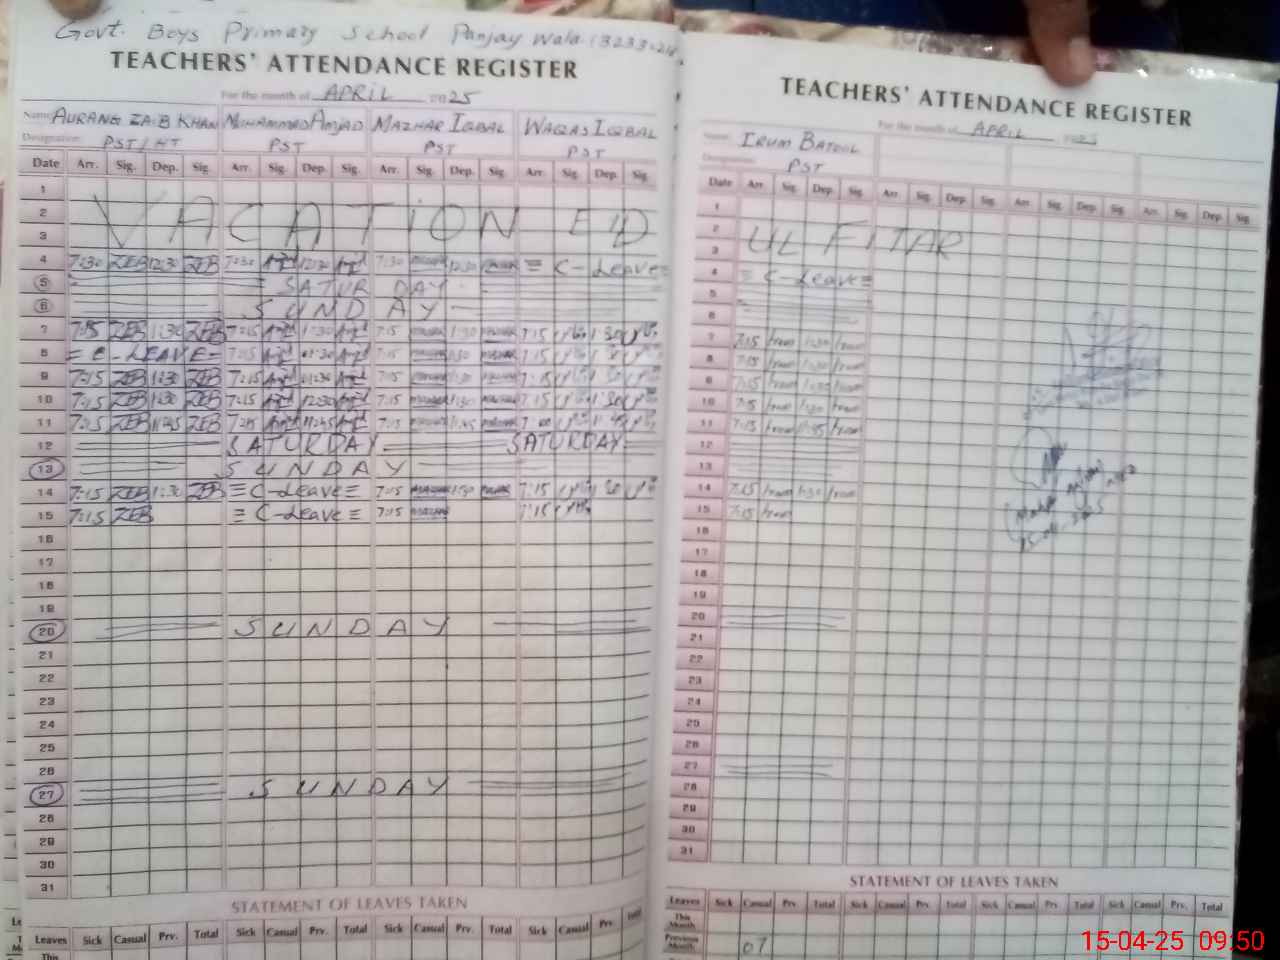 Govt. Boys Primary School Panjay Wala
TEACHERS' ATTENDANCE REGISTER
For the month of APRIL 2025
Name AURANG ZAIB KHAN MUHAMMAD AMJAD MAZHAR IQBAL WAQAS IQBAL
Designation PST/HT PST PST PST
Date Arr. Sig. Dep. Sig. Arr. Sig. Dep. Sig. Arr. Sig. Dep. Sig. Arr. Sig. Dep. Sig.
1
2 VACATION EID
3
4 7:30 ZEB 12:30 ZEB 7:30 12:30 7:30 12:30 = C-Leave =
5 SATURDAY
6 SUNDAY
7 7:15 ZEB 1:30 ZEB 7:15 1:30 7:15 1:30 7:15 1:30
8 = C-LEAVE = 7:15 7:15 1:30 7:15
9 7:15 ZEB 1:30 ZEB 7:15 7:15 1:30 7:15
10 7:15 ZEB 1:30 ZEB 7:15 7:15 1:30 7:15
11 7:15 ZEB 11:45 ZEB 7:15 11:45 7:15 11:45
12 SATURDAY SATURDAY
13 SUNDAY
14 7:15 ZEB 1:30 ZEB = C-Leave = 7:15 1:30 7:15
15 7:15 ZEB = C-Leave = 7:15 7:15
16
17
18
19
20 SUNDAY
21
22
23
24
25
26
27 SUNDAY
28
29
30
31
STATEMENT OF LEAVES TAKEN
Leaves Sick Casual Prv. Total Sick Casual Prv. Total Sick Casual Prv. Total Sick Casual Prv. Total
This
TEACHERS' ATTENDANCE REGISTER
For the month of APRIL 2025
Name IRUM BATOOL
Designation PST
Date Arr. Sig. Dep. Sig. Arr. Sig. Dep. Sig. Arr. Sig. Dep. Sig. Arr. Sig. Dep. Sig.
1
2 UL FITAR
3
4 = C-Leave =
5
6
7 7:15 Irum 1:30 Irum
8 7:15 Irum 1:30 Irum
9 7:15 Irum 1:30 Irum
10 7:15 Irum 1:30 Irum
11 7:15 Irum 11:45 Irum
12
13
14 7:15 Irum 1:30 Irum
15 7:15 Irum
16
17
18
19
20
21
22
23
24
25
26
27
28
29
30
31
STATEMENT OF LEAVES TAKEN
Leaves Sick Casual Prv. Total Sick Casual Prv. Total Sick Casual Prv. Total Sick Casual Prv. Total
This Month
Previous Month 07
15-04-25 09:50